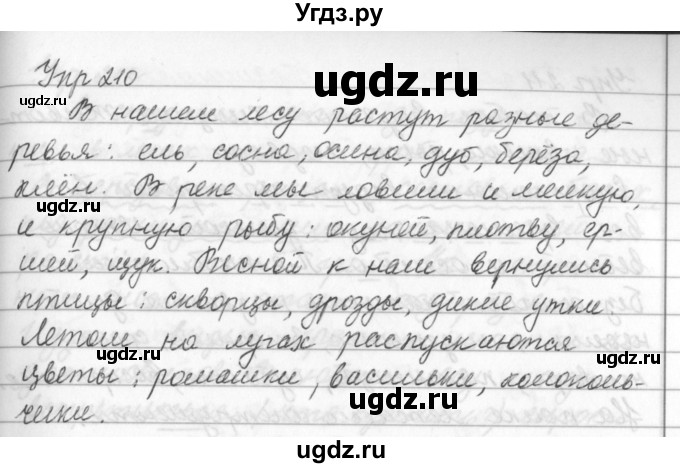 Угдз.ру
Упр 210
ugdz.ru ugdz.ru
В нашем лесу растут разные де-
ревья: ель, сосна, осина, дуб, берёза,
клён. В реке мы ловили и мелкую,
ugdz.ru
и крупную рыбу: окуней, плотву, ер-
шей, щук. Весной к нам вернулись
птицы: скворцы, дрозды, дикие утки.
Летом на лугах распускаются
ugdz.ru
цветы: ромашки, васильки, колоколь-
ugdz.ru
чики.
ugdz.ru